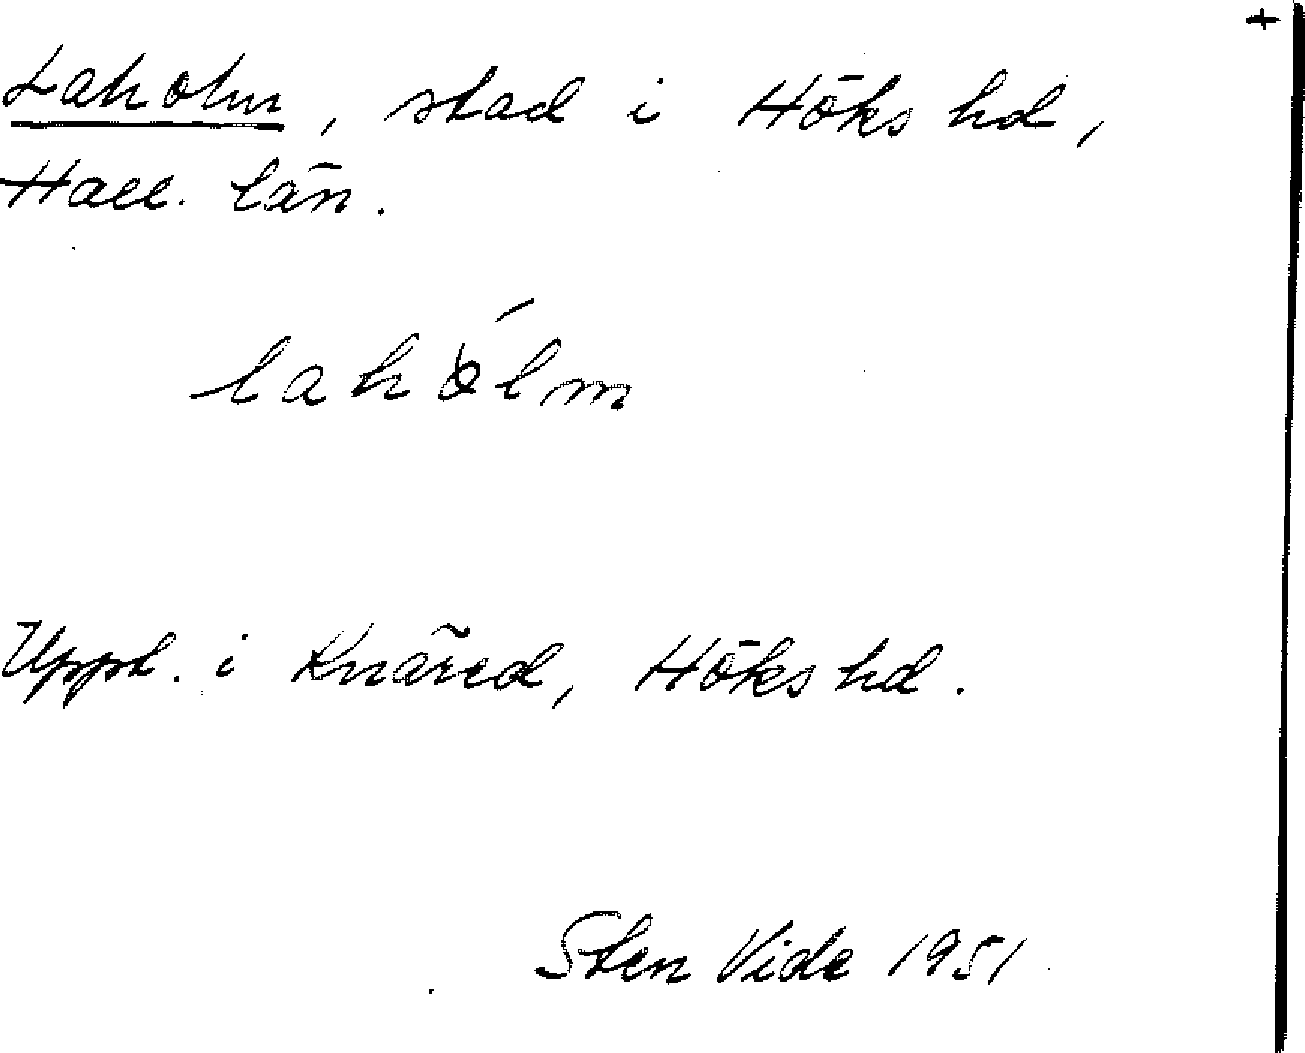 +
Laholm, stad i Höks hd,
Hall. län.
lahólm
Uppt. i Knäred, Höks hd.
Sten Vide 1951